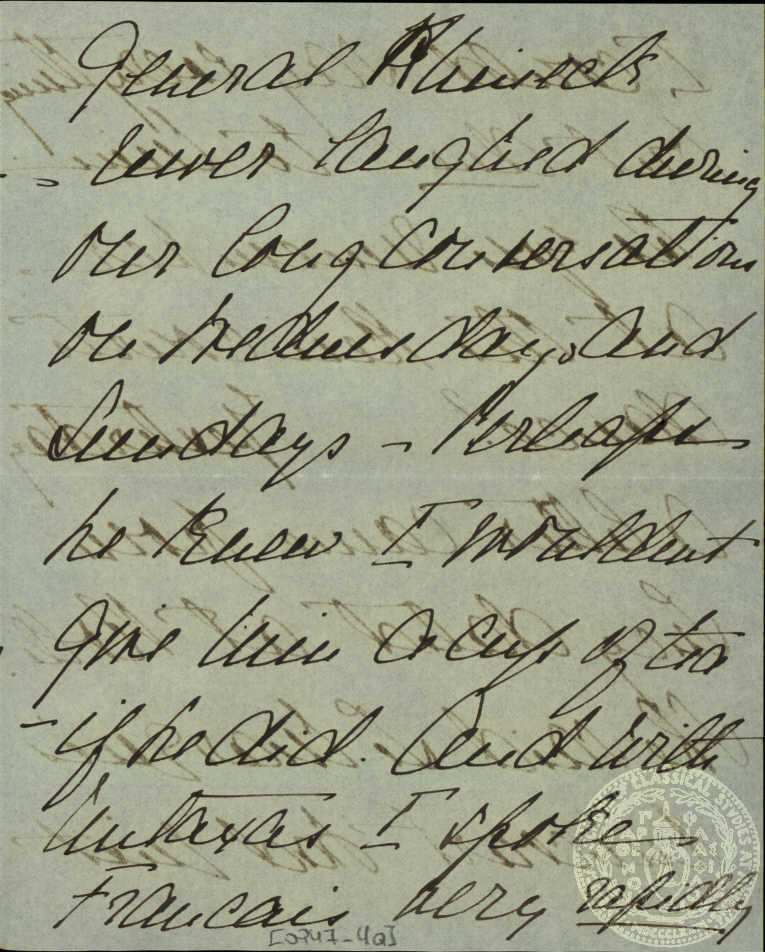 General
never laughed during
our long conversations
on Wednesdays and
Sundays – Perhaps
he knew I wouldent
give him a cup of tea
– if he did. And with
I spoke –
Francais very rapidly
[0247-4a]
CLASSICAL STUDIES